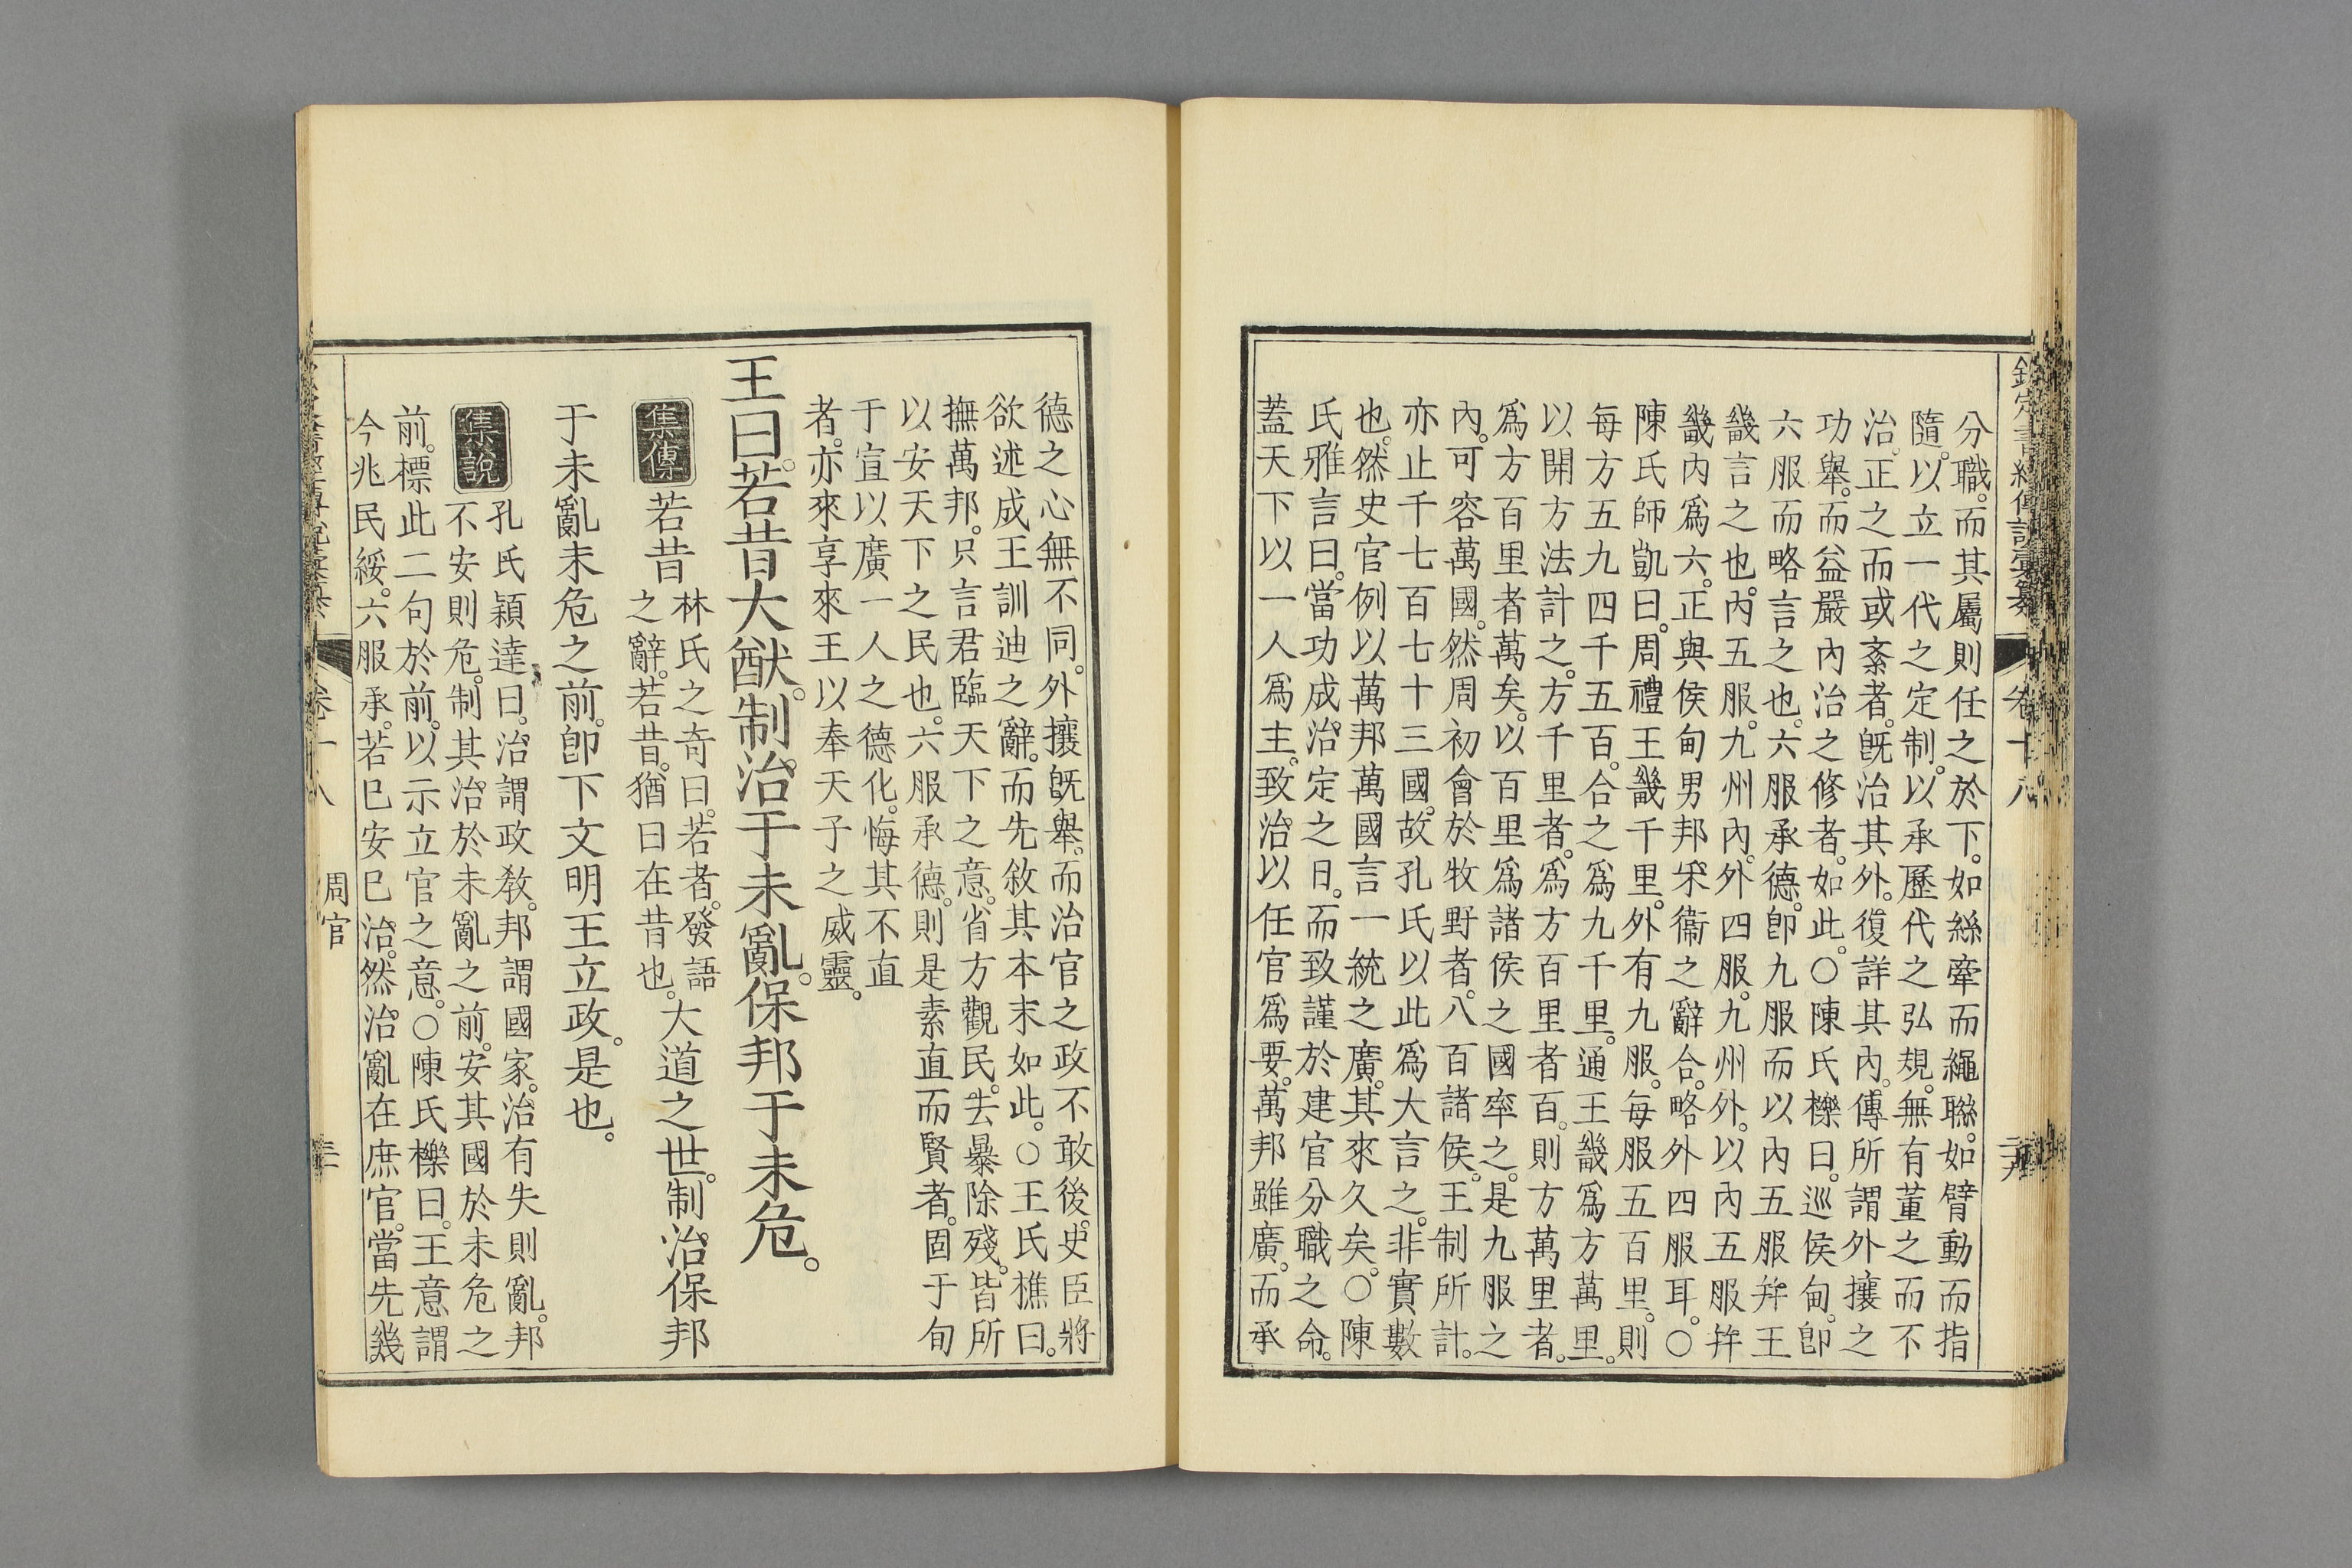 欽定書經傳說彙纂 卷十八
分職。而其屬則任之於下。如絲牽而繩聯。如臂動而指
隨。以立一代之定制。以承歷代之弘規。無有董之而不
治。正之而或紊者。旣治其外。復詳其內。傳所謂外攘之
功舉。而益嚴內治之修者。如此。○陳氏櫟曰。巡侯甸。卽
六服而略言之也。六服承德。卽九服而以內五服幷王
畿言之也。內五服。九州內。外四服。九州外。以內五服幷
畿內爲六。正與侯甸男邦采衞之辭合。略外四服耳。○
陳氏師凱曰。周禮王畿千里。外有九服。每服五百里。則
每方五九四千五百。合之爲九千里。通王畿爲方萬里。
以開方法計之。方千里者。爲方百里者百。則方萬里者。
爲方百里者萬矣。以百里爲諸侯之國率之。是九服之
內。可容萬國。然周初會於牧野者。八百諸侯。王制所計。
亦止千七百七十三國。故孔氏以此爲大言之。非實數
也。然史官例以萬邦萬國言一統之廣。其來久矣。○陳
氏雅言曰。當功成。治定之日。而致謹於建官分職之命。
蓋天下以一人爲主。致治以任官爲要。萬邦雖廣。而承
德之心無不同。外攘旣舉。而治官之政不敢後。史臣將
欲述成王訓迪之辭。而先敘其本末如此。○王氏樵曰。
撫萬邦。只言君臨天下之意。省方觀民。去暴除殘。皆所
以安天下之民也。六服承德。則是素直而賢者。固于旬
于宣以廣一人之德化。悔其不直
者。亦來享來王以奉天子之威靈。
王曰。若昔大猷。制治于未亂。保邦于未危。
集傳 若昔 林氏之奇曰。若者。發語
之辭。若昔。猶曰在昔也。 大道之世。制治保邦
于未亂未危之前。卽下文明王立政。是也。
集說 孔氏穎達曰。治謂政敎。邦謂國家。治有失則亂。邦
不安則危。制其治於未亂之前。安其國於未危之
前。標此二句於前。以示立官之意。○陳氏櫟曰。王意謂
今兆民綏。六服承。若已安已治。然治亂在庶官。當先幾
卷十八 周官